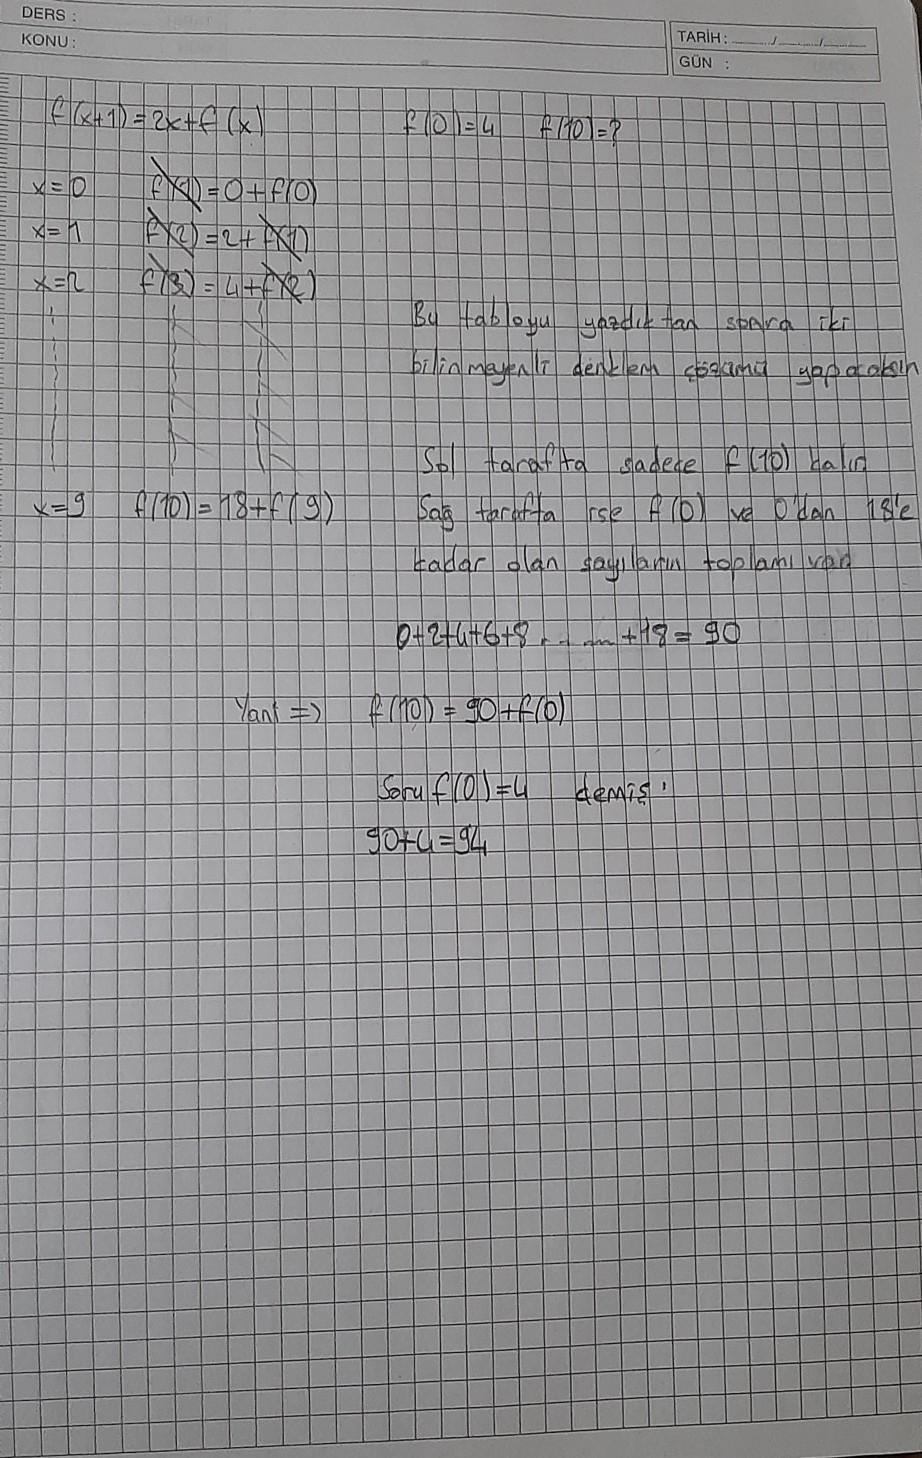 DERS :
KONU :
TARİH : ......../......../........
GÜN :
f(x+1)=2x+f(x) f(0)=4 f(10)=?
x=0 f(1)=0+f(0)
x=1 f(2)=2+f(1)
x=2 f(3)=4+f(2)
Bu tabloyu yazdıktan sonra iki
bilinmeyenli denklem çözümü yapacaksın
Sol tarafta sadece f(10) kalır
x=9 f(10)=18+f(9) Sağ tarafta ise f(0) ve 0'dan 18'e
kadar olan sayıların toplamı var
0+2+4+6+8......+18=90
Yani => f(10)=90+f(0)
Soru f(0)=4 demiş.
90+4=94